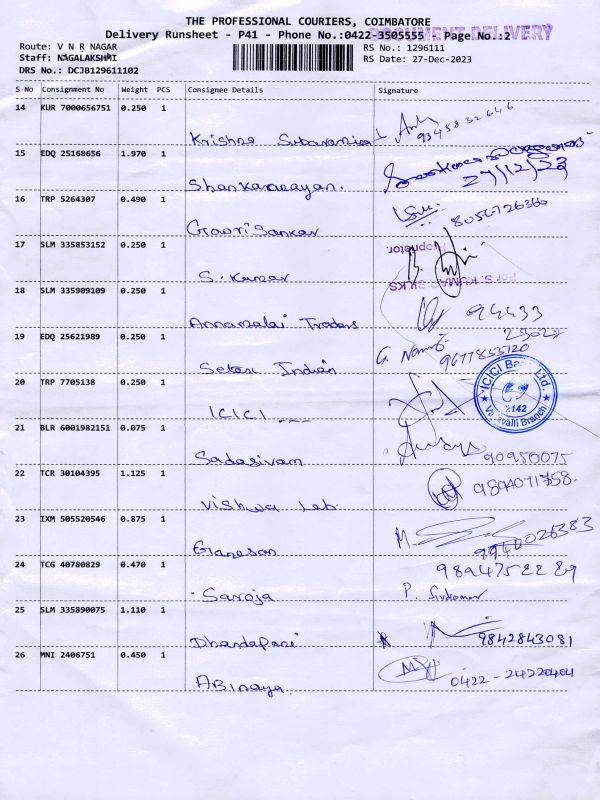 THE PROFESSIONAL COURIERS, COIMBATORE
Delivery Runsheet - P41 - Phone No.:0422-3505555 Page No.:2
DOCUMENT DELIVERY
Route: V N R NAGAR
RS No.: 1296111
Staff: NAGALAKSHMI
RS Date: 27-Dec-2023
DRS No.: DCJB129611102
S No Consignment No Weight PCS Consignee Details Signature
14 KUR 7000656751 0.250 1
Krishna
9345832646
15 EDQ 25168656 1.970 1
Shankarnarayan.
27/12/23
16 TRP 5264307 0.490 1
Gowri Sankar
8056726360
17 SLM 335853152 0.250 1
S. Kumar
Proprietor.
For S. KUMAR SILKS
18 SLM 335909109 0.250 1
Annamalai Traders
94433
19 EDQ 25621989 0.250 1
Indian
9677853720
20 TRP 7705138 0.250 1
ICICI
ICICI Bank Ltd.
2142
Vadavalli Branch
21 BLR 6001982151 0.075 1
Sadasivam
90950075
22 TCR 30104395 1.125 1
Vishwa Lab.
9894071758.
23 IXM 505520546 0.875 1
Ganesan
M.
9940026383
24 TCG 40780829 0.470 1
Saroja
P. Sivakumar
25 SLM 335890075 1.110 1
Dhandapani
9842843081
26 MNI 2406751 0.450 1
Abinaya
0422-24220404